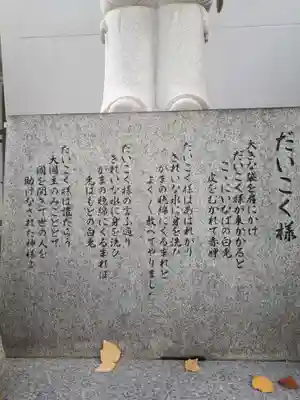 だいこく様
大きな袋を肩にかけ
だいこく様が来かかると
ここにいなばの白兎
皮をむかれて赤裸
だいこく様はあはれがり
きれいな水に身を洗ひ
がまの穂綿にくるまれと
よくよく教へてやりました
だいこく様の言ふ通り
きれいな水に身を洗ひ
がまの穂綿にくるまれば
兎はもとの白兎
だいこく様は誰だらう
大国主のみこととて
国を開きて世の人を
助けなされた神様よ